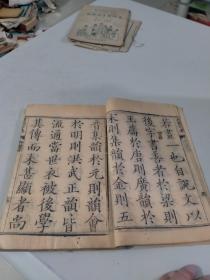 一也自說文以
後字書善者於梁則
玉篇於唐則廣韻於
宋則集韻於金則五
音集韻於元則韻會
於明則洪武正韻皆
流通當世衣被後學
其傳而未甚顯者尚